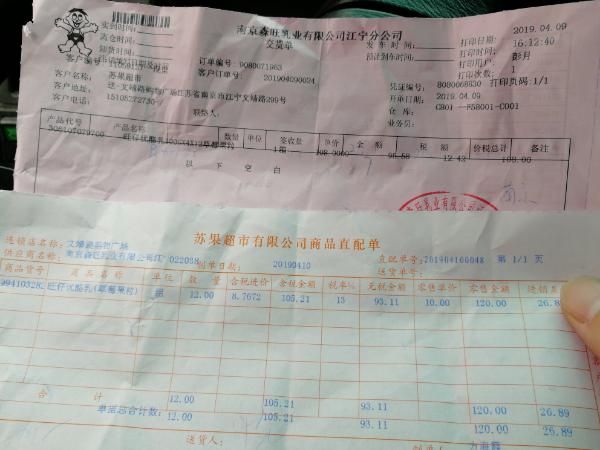 南京森旺乳业有限公司江宁分公司
交货单
2019.04.09
实到时间:
离仓时间:
卸货时间:
发车时间:
预计到车时间:
打印日期:
打印时间: 16:12:40
打印用户: 彭月
打印次数: 1
打印页码:1/1
订单编号: 9080071963
客户订单号: 201904090024
客户名称: 苏果超市
客户地址: 送-文靖路购物广场江苏省南京市江宁文靖路299号
客户电话: 15105272730-/
联络人:
凭证编号: 8080068630
开单日期: 2019.04.09
仓库: CB01--F5B001-C001
业务员:
产品代号 产品名称 数量 单位 签收量 单价 金额 税额 价税总计 备注
1箱 108.0000 95.58 12.42 108.00
以下空白
苏果超市有限公司商品直配单
连锁店名称: 文靖路购物广场
供应商名称: 南京森旺乳业有限公司江 022038
制单日期: 20190410
直配单号:201904166048 第 1/1 页
送货单号:
商品货号 商品名称 单位 数量 含税进价 含税金额 税率% 无税金额 零售单价 零售金额 进销差
99410328. 旺仔优酪乳(草莓果粒) 组 12.00 8.7672 105.21 13 93.11 10.00 120.00 26.89
合计 12.00 105.21 93.11 120.00 26.89
单据总合计数: 12.00 105.21 93.11 120.00 26.89
送货人: